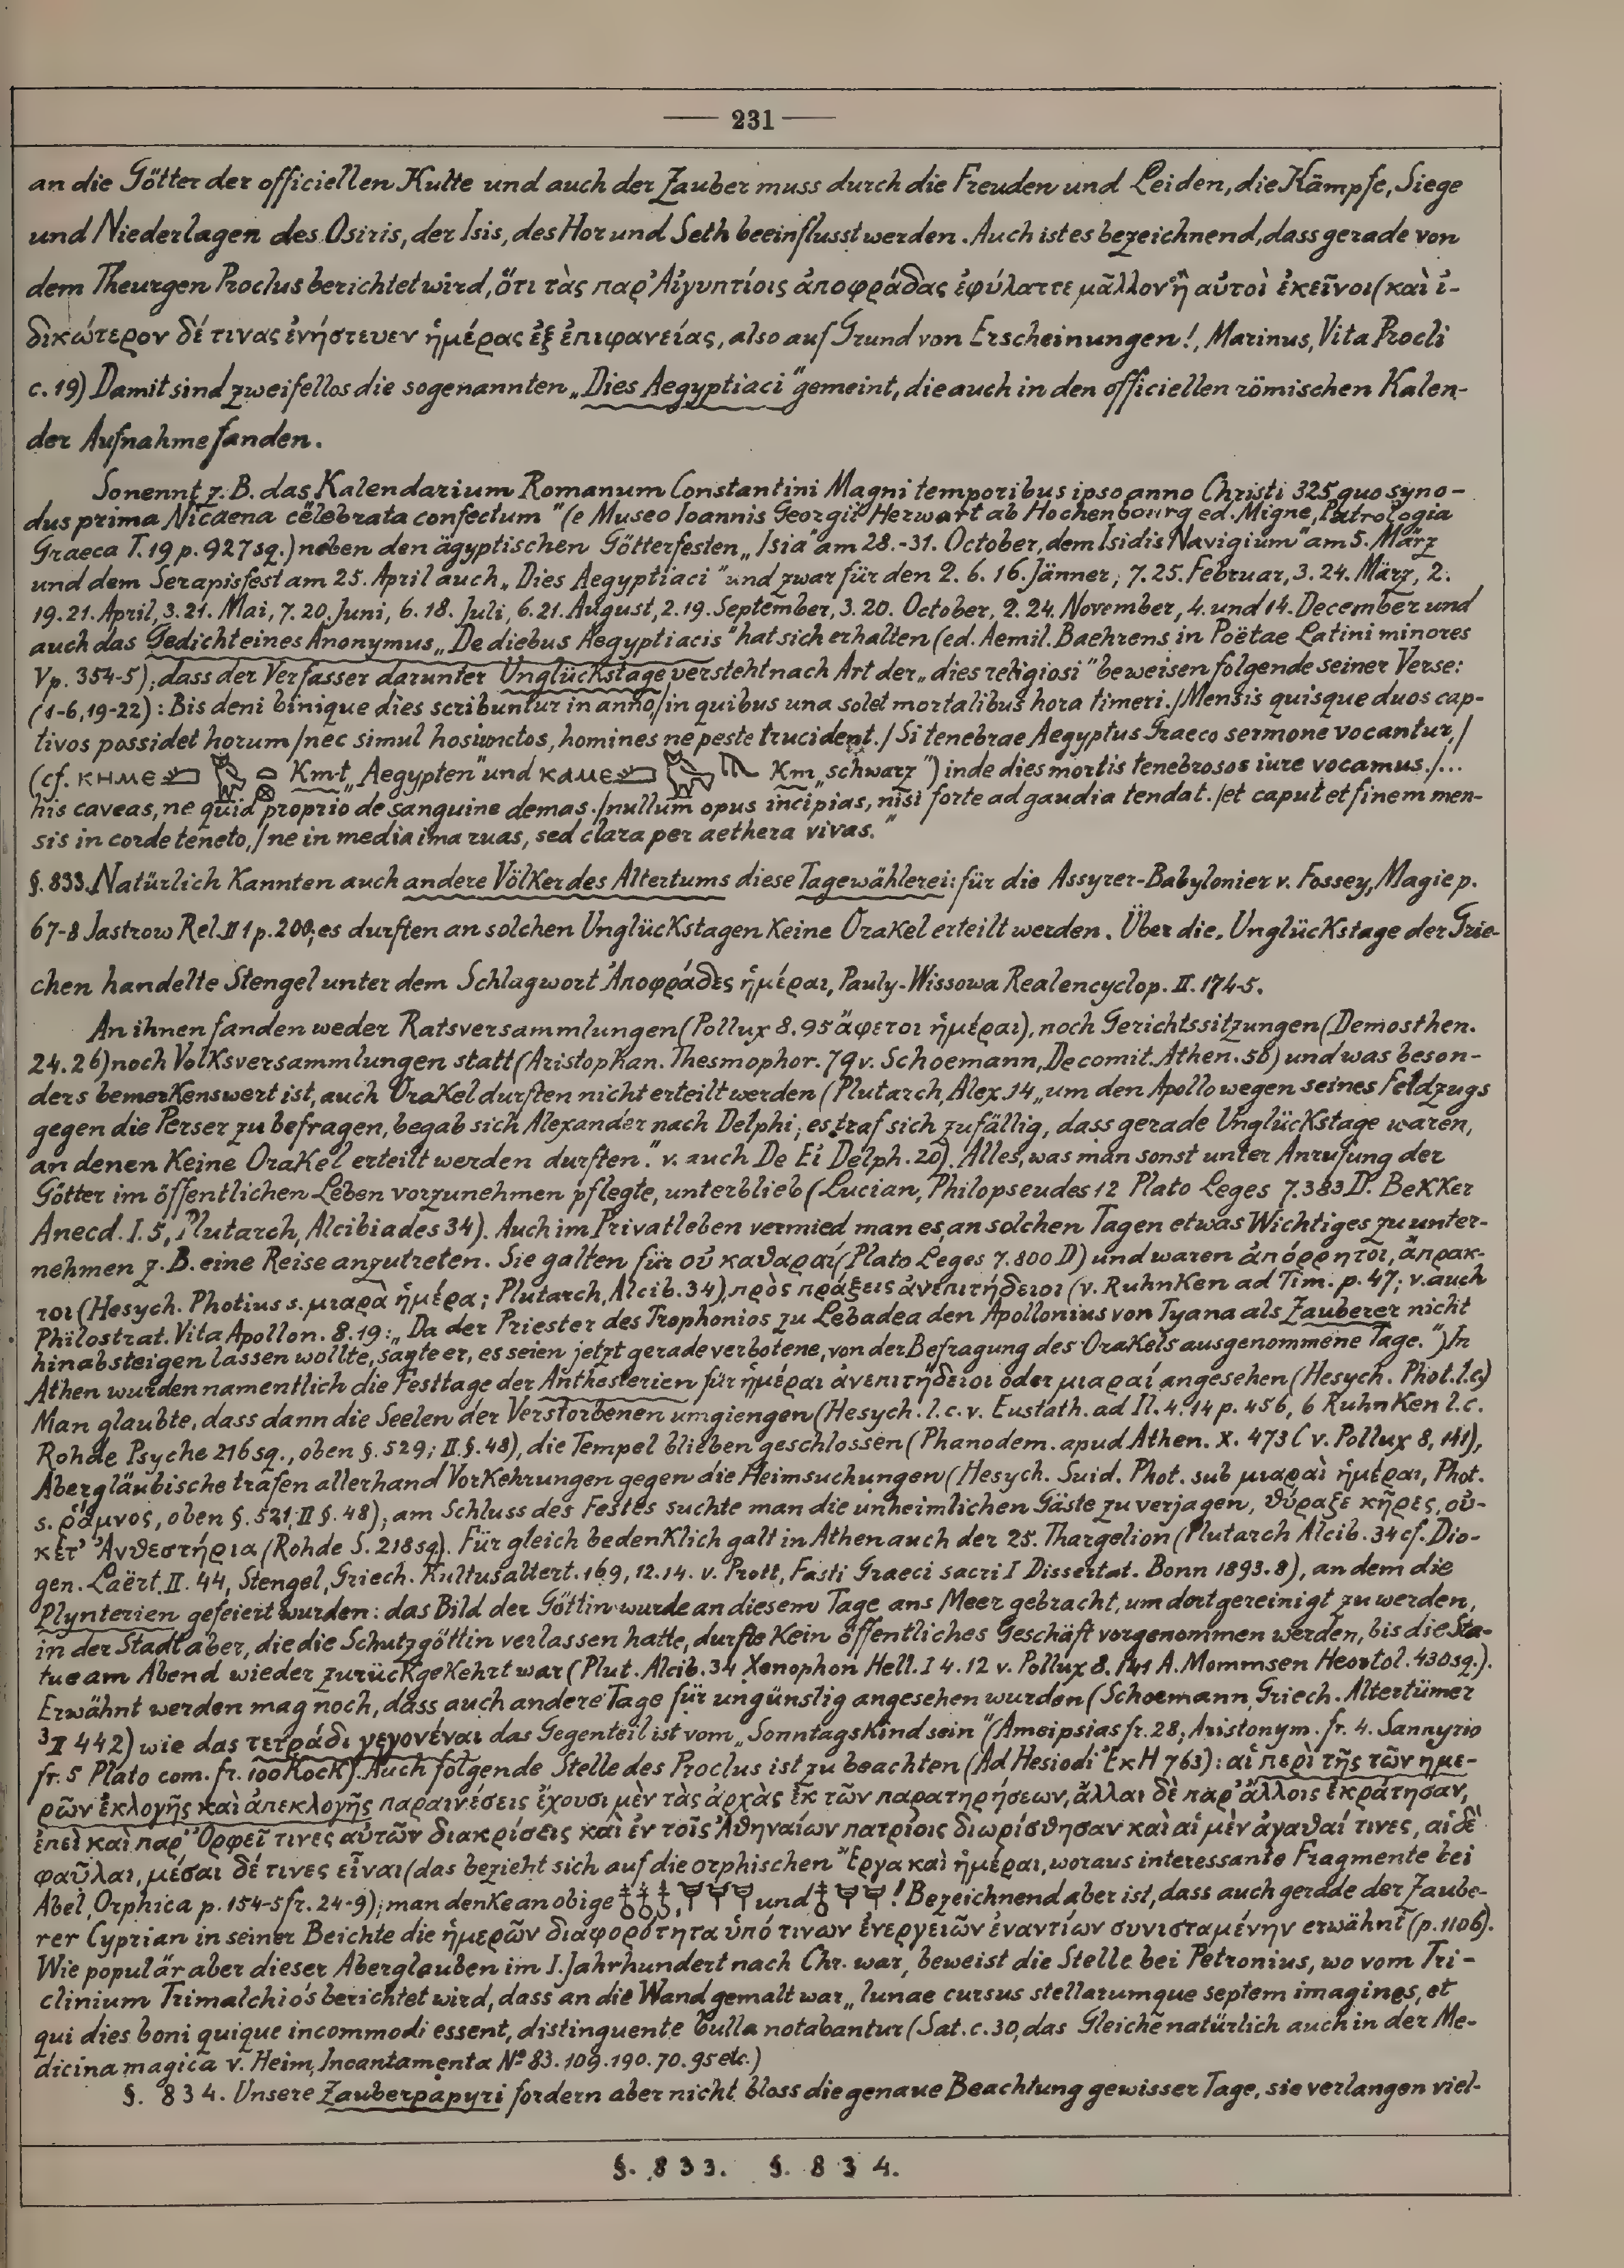 — 231 —
an die Götter der officiellen Kulte und auch der Zauber muss durch die Freuden und Leiden, die Kämpfe, Siege
und Niederlagen des Osiris, der Isis, des Hor und Seth beeinflusst werden. Auch ist es bezeichnend, dass gerade von
dem Theurgen Proclus berichtet wird, ὅτι τὰς παρ' Αἰγυπτίοις ἀποφράδας ἐφύλαττε μᾶλλον ἢ αὐτοὶ ἐκεῖνοι (καὶ ἰ-
δικώτερον δέ τινας ἐνήστευεν ἡμέρας ἐξ ἐπιφανείας, also auf Grund von Erscheinungen!, Marinus, Vita Procli
c. 19) Damit sind zweifellos die sogenannten „Dies Aegyptiaci" gemeint, die auch in den officiellen römischen Kalen-
der Aufnahme fanden.
So nennt z. B. das „Kalendarium Romanum Constantini Magni temporibus ipso anno Christi 325 quo syno-
dus prima Nicaena celebrata confectum" (e Museo Ioannis Georgii Herwart ab Hochenbourg ed. Migne, Patrologia
Graeca T. 19 p. 927 sq.) neben den ägyptischen Götterfesten „Isia" am 28.-31. October, dem Isidis Navigium" am 5. März
und dem Serapisfest am 25. April auch „Dies Aegyptiaci" und zwar für den 2. 6. 16. Jänner, 7. 25. Februar, 3. 24. März, 2.
19. 21. April, 3. 21. Mai, 7. 20. Juni, 6. 18. Juli, 6. 21. August, 2. 19. September, 3. 20. October, 2. 24. November, 4. und 14. December und
auch das Gedicht eines Anonymus „De diebus Aegyptiacis" hat sich erhalten (ed. Aemil. Baehrens in Poëtae Latini minores
V p. 354-5); dass der Verfasser darunter Unglückstage versteht nach Art der „dies religiosi" beweisen folgende seiner Verse:
(1-6, 19-22): Bis deni binique dies scribuntur in anno/in quibus una solet mortalibus hora timeri./Mensis quisque duos cap-
tivos possidet horum/nec simul hos iunctos, homines ne peste trucident./Si tenebrae Aegyptus Graeco sermone vocantur,/
(cf. ⲕⲏⲙⲉ Km·t „Aegypten" und ⲕⲁⲙⲉ Km „schwarz") inde dies mortis tenebrosos iure vocamus./...
his caveas, ne quid proprio de sanguine demas./nullum opus incipias, nisi forte ad gaudia tendat./et caput et finem men-
sis in corde teneto,/ne in media ima ruas, sed clara per aethera vivas."
§. 833. Natürlich kannten auch andere Völker des Altertums diese Tagewählerei: für die Assyrer-Babylonier v. Fossey, Magie p.
67-8 Jastrow Rel. II 1 p. 200; es durften an solchen Unglückstagen keine Orakel erteilt werden. Über die Unglückstage der Grie-
chen handelte Stengel unter dem Schlagwort Ἀποφράδες ἡμέραι, Pauly-Wissowa Realencyclop. II. 174-5.
An ihnen fanden weder Ratsversammlungen (Pollux 8. 95 ἄφετοι ἡμέραι), noch Gerichtssitzungen (Demosthen.
24. 26) noch Volksversammlungen statt (Aristophan. Thesmophor. 79 v. Schoemann, De comit. Athen. 50) und was beson-
ders bemerkenswert ist, auch Orakel durften nicht erteilt werden (Plutarch, Alex. 14 „um den Apollo wegen seines Feldzugs
gegen die Perser zu befragen, begab sich Alexander nach Delphi; es traf sich zufällig, dass gerade Unglückstage waren,
an denen keine Orakel erteilt werden durften." v. auch De Ei Delph. 20). Alles, was man sonst unter Anrufung der
Götter im öffentlichen Leben vorzunehmen pflegte, unterblieb (Lucian, Philopseudes 12 Plato Leges 7. 383 D. Bekker
Anecd. I. 5, Plutarch, Alcibiades 34). Auch im Privatleben vermied man es, an solchen Tagen etwas Wichtiges zu unter-
nehmen z. B. eine Reise anzutreten. Sie galten für οὐ καθαραί (Plato Leges 7. 800 D) und waren ἀπόρρητοι, ἄπρακ-
τοι (Hesych. Photius s. μιαρὰ ἡμέρα; Plutarch, Alcib. 34), πρὸς πράξεις ἀνεπιτήδειοι (v. Ruhnken ad Tim. p. 47; v. auch
Philostrat. Vita Apollon. 8. 19: „Da der Priester des Trophonios zu Lebadea den Apollonius von Tyana als Zauberer nicht
hinabsteigen lassen wollte, sagte er, es seien jetzt gerade verbotene, von der Befragung des Orakels ausgenommene Tage.") In
Athen wurden namentlich die Festtage der Anthesterien für ἡμέραι ἀνεπιτήδειοι oder μιαραί angesehen (Hesych. Phot. l.c.)
Man glaubte, dass dann die Seelen der Verstorbenen umgiengen (Hesych. l. c. v. Eustath. ad Il. 4. 14 p. 456, 6 Ruhnken l. c.
Rohde Psyche 216 sq., oben §. 529; II. §. 48), die Tempel blieben geschlossen (Phanodem. apud Athen. X. 473 C v. Pollux 8, 141),
Abergläubische trafen allerhand Vorkehrungen gegen die Heimsuchungen (Hesych. Suid. Phot. sub μιαραὶ ἡμέραι, Phot.
s. ῥάμνος, oben §. 521, II §. 48); am Schluss des Festes suchte man die unheimlichen Gäste zu verjagen, θύραζε κῆρες, οὐ-
κέτ' Ἀνθεστήρια (Rohde S. 218 sq). Für gleich bedenklich galt in Athen auch der 25. Thargelion (Plutarch Alcib. 34 cf. Dio-
gen. Laërt. II. 44, Stengel, Griech. Kultusaltert. 169, 12. 14. v. Prott, Fasti Graeci sacri I Dissertat. Bonn 1893. 8), an dem die
Plynterien gefeiert wurden: das Bild der Göttin wurde an diesem Tage ans Meer gebracht, um dort gereinigt zu werden,
in der Stadt aber, die die Schutzgöttin verlassen hatte, durfte kein öffentliches Geschäft vorgenommen werden, bis die Sta-
tue am Abend wieder zurückgekehrt war (Plut. Alcib. 34 Xenophon Hell. I 4. 12 v. Pollux 8. 141 A. Mommsen Heortol. 430 sq.).
Erwähnt werden mag noch, dass auch andere Tage für ungünstig angesehen wurden (Schoemann, Griech. Altertümer
³II 442) wie das τετράδι γεγονέναι das Gegenteil ist vom „Sonntagskind sein" (Ameipsias fr. 28; Aristonym. fr. 4. Sannyrio
fr. 5 Plato com. fr. 100 Kock). Auch folgende Stelle des Proclus ist zu beachten (Ad Hesiodi ἜκΗ 763): αἱ περὶ τῆς τῶν ημε-
ρῶν ἐκλογῆς καὶ ἀπεκλογῆς παραινέσεις ἔχουσι μὲν τὰς ἀρχὰς ἐκ τῶν παρατηρήσεων, ἄλλαι δὲ παρ' ἄλλοις ἐκράτησαν,
ἐπεὶ καὶ παρ' Ὀρφεῖ τινες αὐτῶν διακρίσεις καὶ ἐν τοῖς Ἀθηναίων πατρίοις διωρίσθησαν καὶ αἱ μὲν ἀγαθαί τινες, αἱ δὲ
φαῦλαι, μέσαι δέ τινες εἶναι (das bezieht sich auf die orphischen Ἔργα καὶ ἡμέραι, woraus interessante Fragmente bei
Abel, Orphica p. 154-5 fr. 24-9); man denke an obige und ! Bezeichnend aber ist, dass auch gerade der Zaube-
rer Cyprian in seiner Beichte die ἡμερῶν διαφορότητα ὑπό τινων ἐνεργειῶν ἐναντίων συνισταμένην erwähnt (p. 1106).
Wie populär aber dieser Aberglauben im I. Jahrhundert nach Chr. war, beweist die Stelle bei Petronius, wo vom Tri-
clinium Trimalchio's berichtet wird, dass an die Wand gemalt war „lunae cursus stellarumque septem imagines, et
qui dies boni quique incommodi essent, distinguente bulla notabantur (Sat. c. 30, das Gleiche natürlich auch in der Me-
dicina magica v. Heim, Incantamenta Nº 83. 109. 190. 70. 95 etc.)
§. 834. Unsere Zauberpapyri fordern aber nicht bloss die genaue Beachtung gewisser Tage, sie verlangen viel-
§. 833. §. 834.